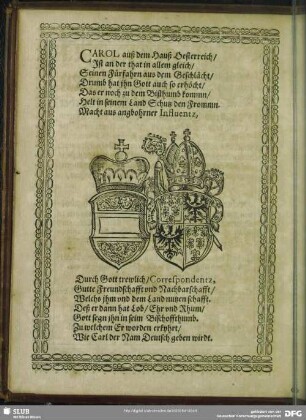 CAROL auß dem Hauß Oesterreich/
Ist an der that in allem gleich/
Seinen Fürfahrn aus dem Geschlächt/
Drumb hat jhn Gott auch so erhöcht/
Das er noch zu dem Bisthumb kommn/
Helt in seinem Land Schutz den Frommn.
Macht aus angbohrner Influentz,
Durch Gott trewlich/Correspondentz,
Gutte Freundschafft vnd Nachbarschafft/
Welchs jhm vnd dem Land nutzen schafft.
Deß er dann hat Lob/Ehr vnd Rhum/
Gott segn jhn in seim Bischoffthumb.
Zu welchem Er worden erkohrt/
Wie Carl der Nam Deutsch geben wirdt.
SLUB
DFG